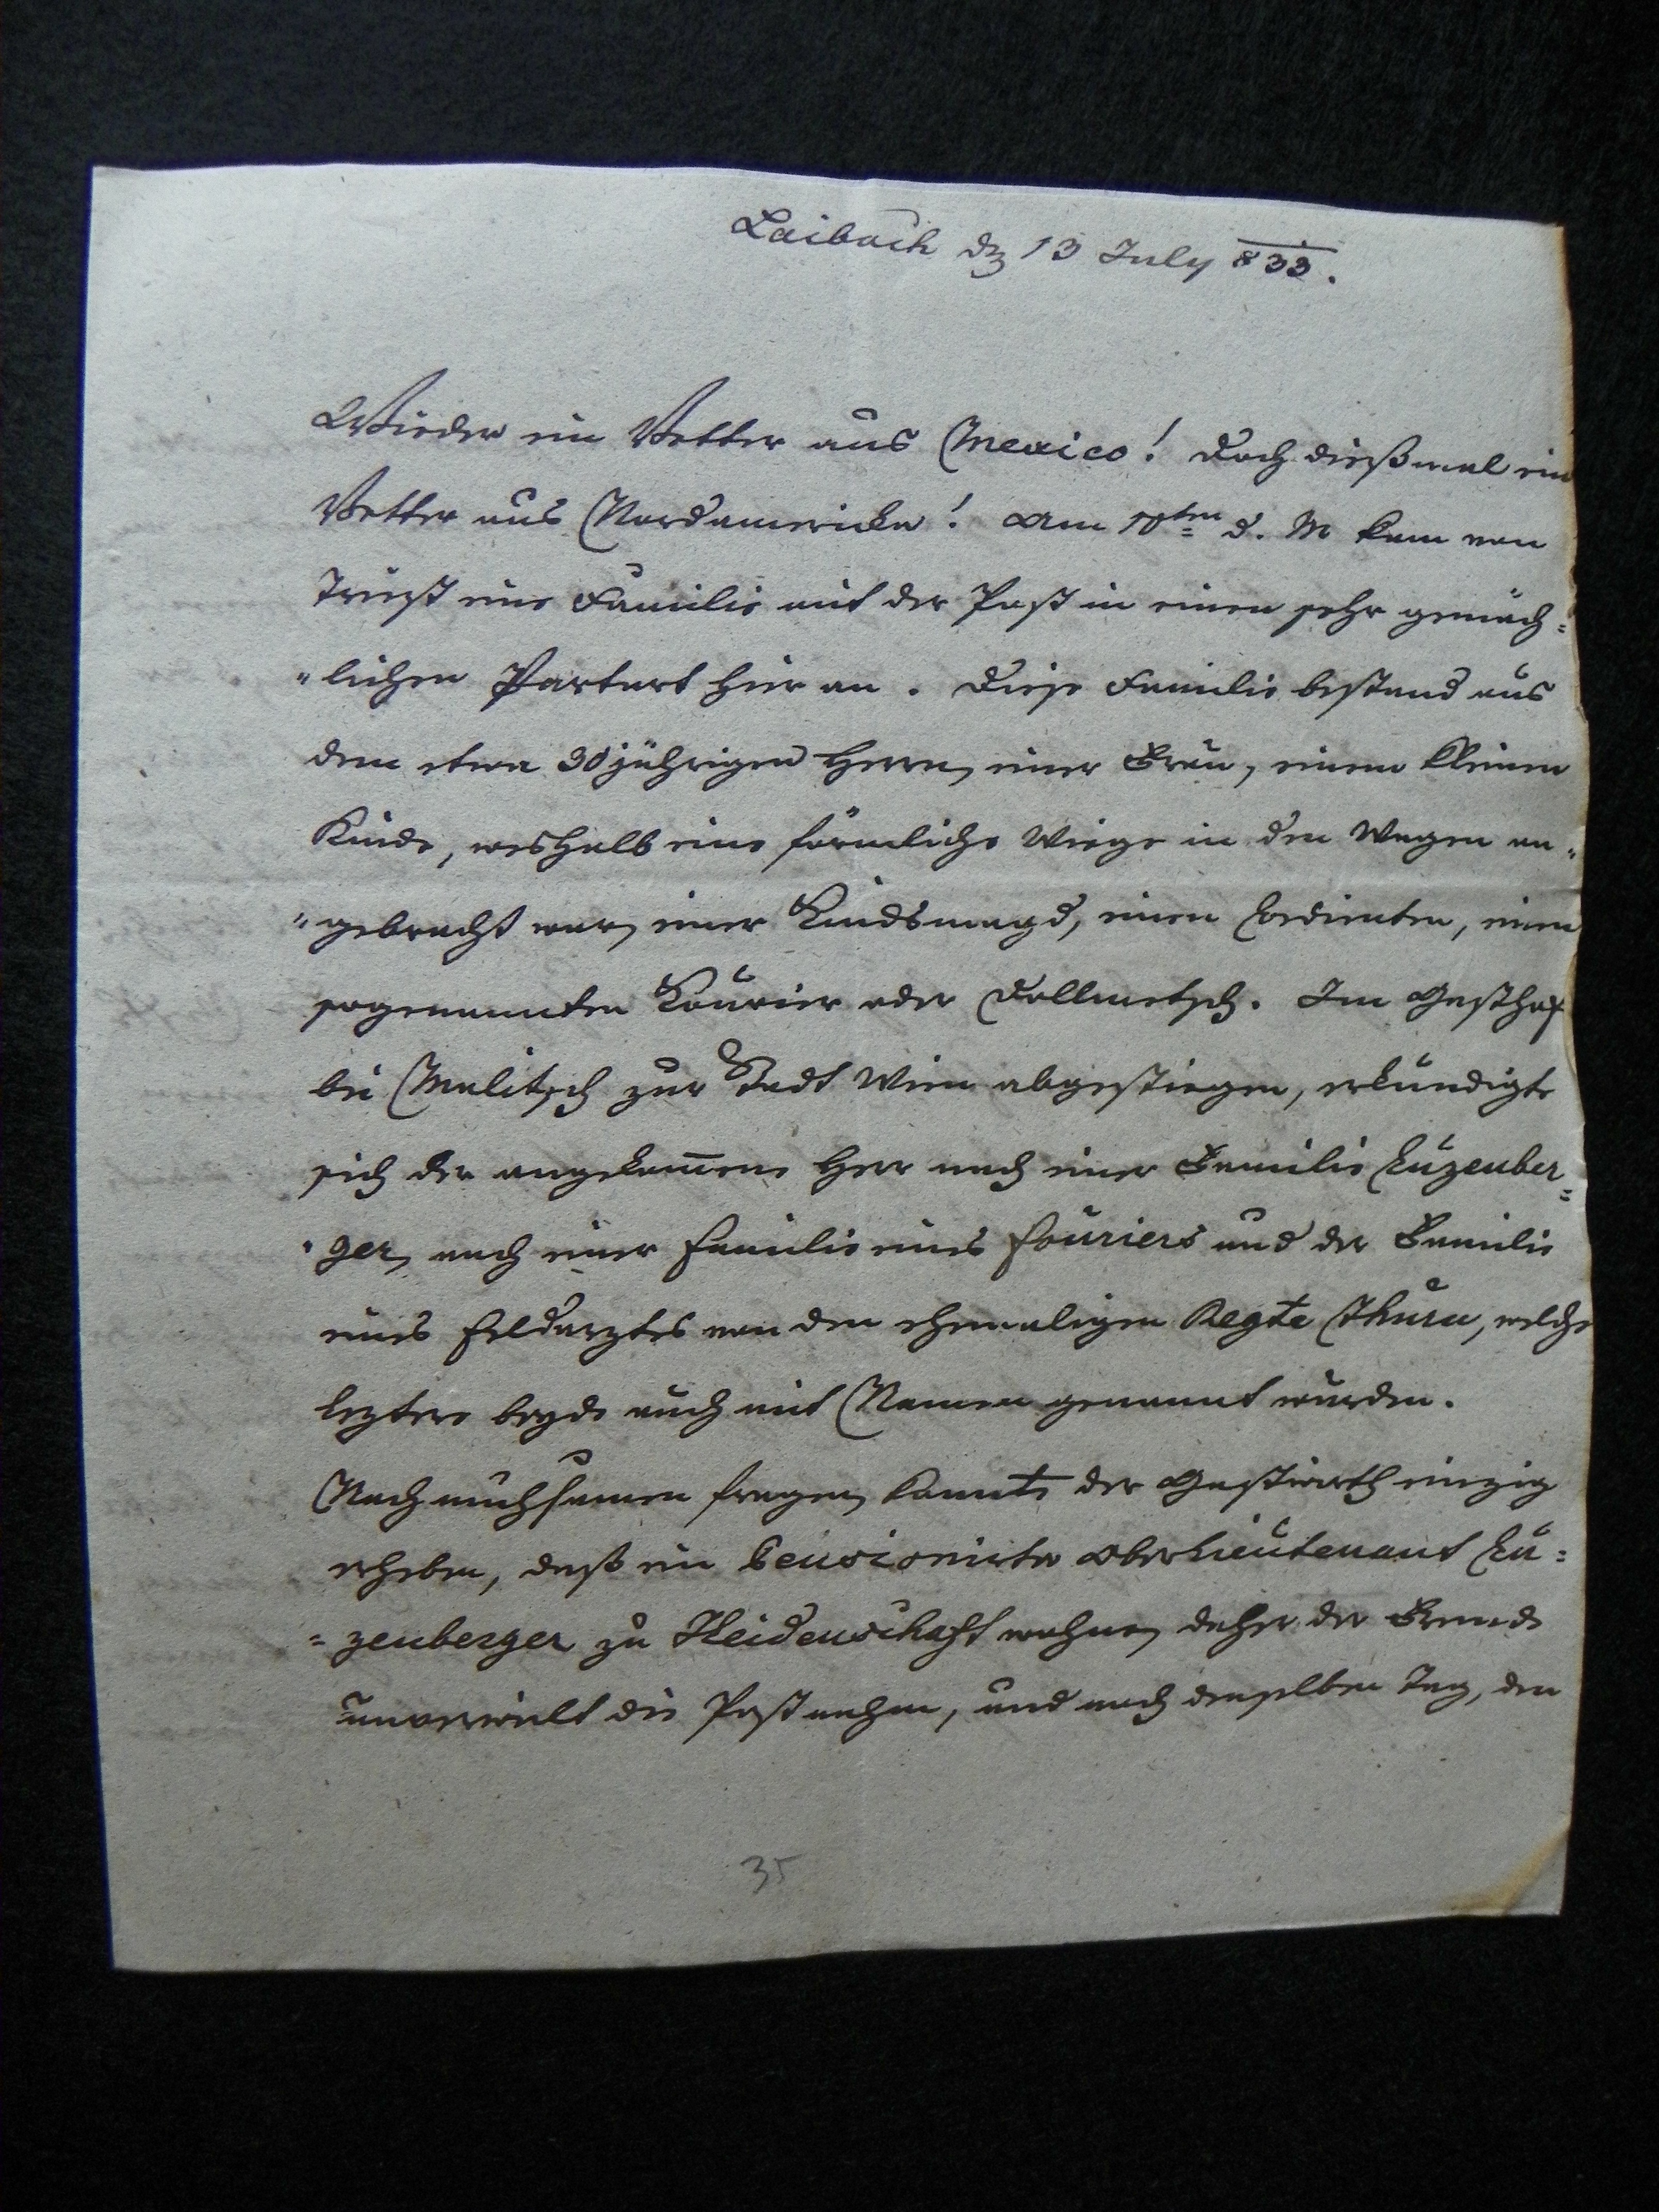 Laibach dẽ 13 July 833.
Wieder ein Vetter aus Mexico! Doch dießmal ein
Vetter aus Nordamericka! Am 10ten d. M kam von
Triest eine Familie mit der Post in einen sehr gemäch=
"lichen hier an. Diese Familie bestand aus
dem etwa 30jährigen Herrn, einer Frau, einem kleinen
Kinde, weshalb eine förmliche Wiege in den Wagen an"
"gebracht war, einer Kindsmagd, einen Bedienten, einen
sogenannten Kourier oder Dollmetsch. Im Gasthof
bei Malitsch zur Stadt Wien abgestiegen, erkundigte
sich der angekom̄ene Herr nach einer Familie Luzenber=
"ger, nach einer Familie eines Fouriers und der Familie
eines Feldarztes von dem ehemaligen Regte Thurn, welche
leztere beyde auch mit Namen genannt wurden.
Nach mühsamen fragen, konnte der Gastwirth einzig
erheben, daß ein Pensionirter Oberlieutenant Lu=
=zenberger zu Heidenschaft wohne, daher der Fremde
unverweilt die Post nahm, und noch denselben Tag, den
35